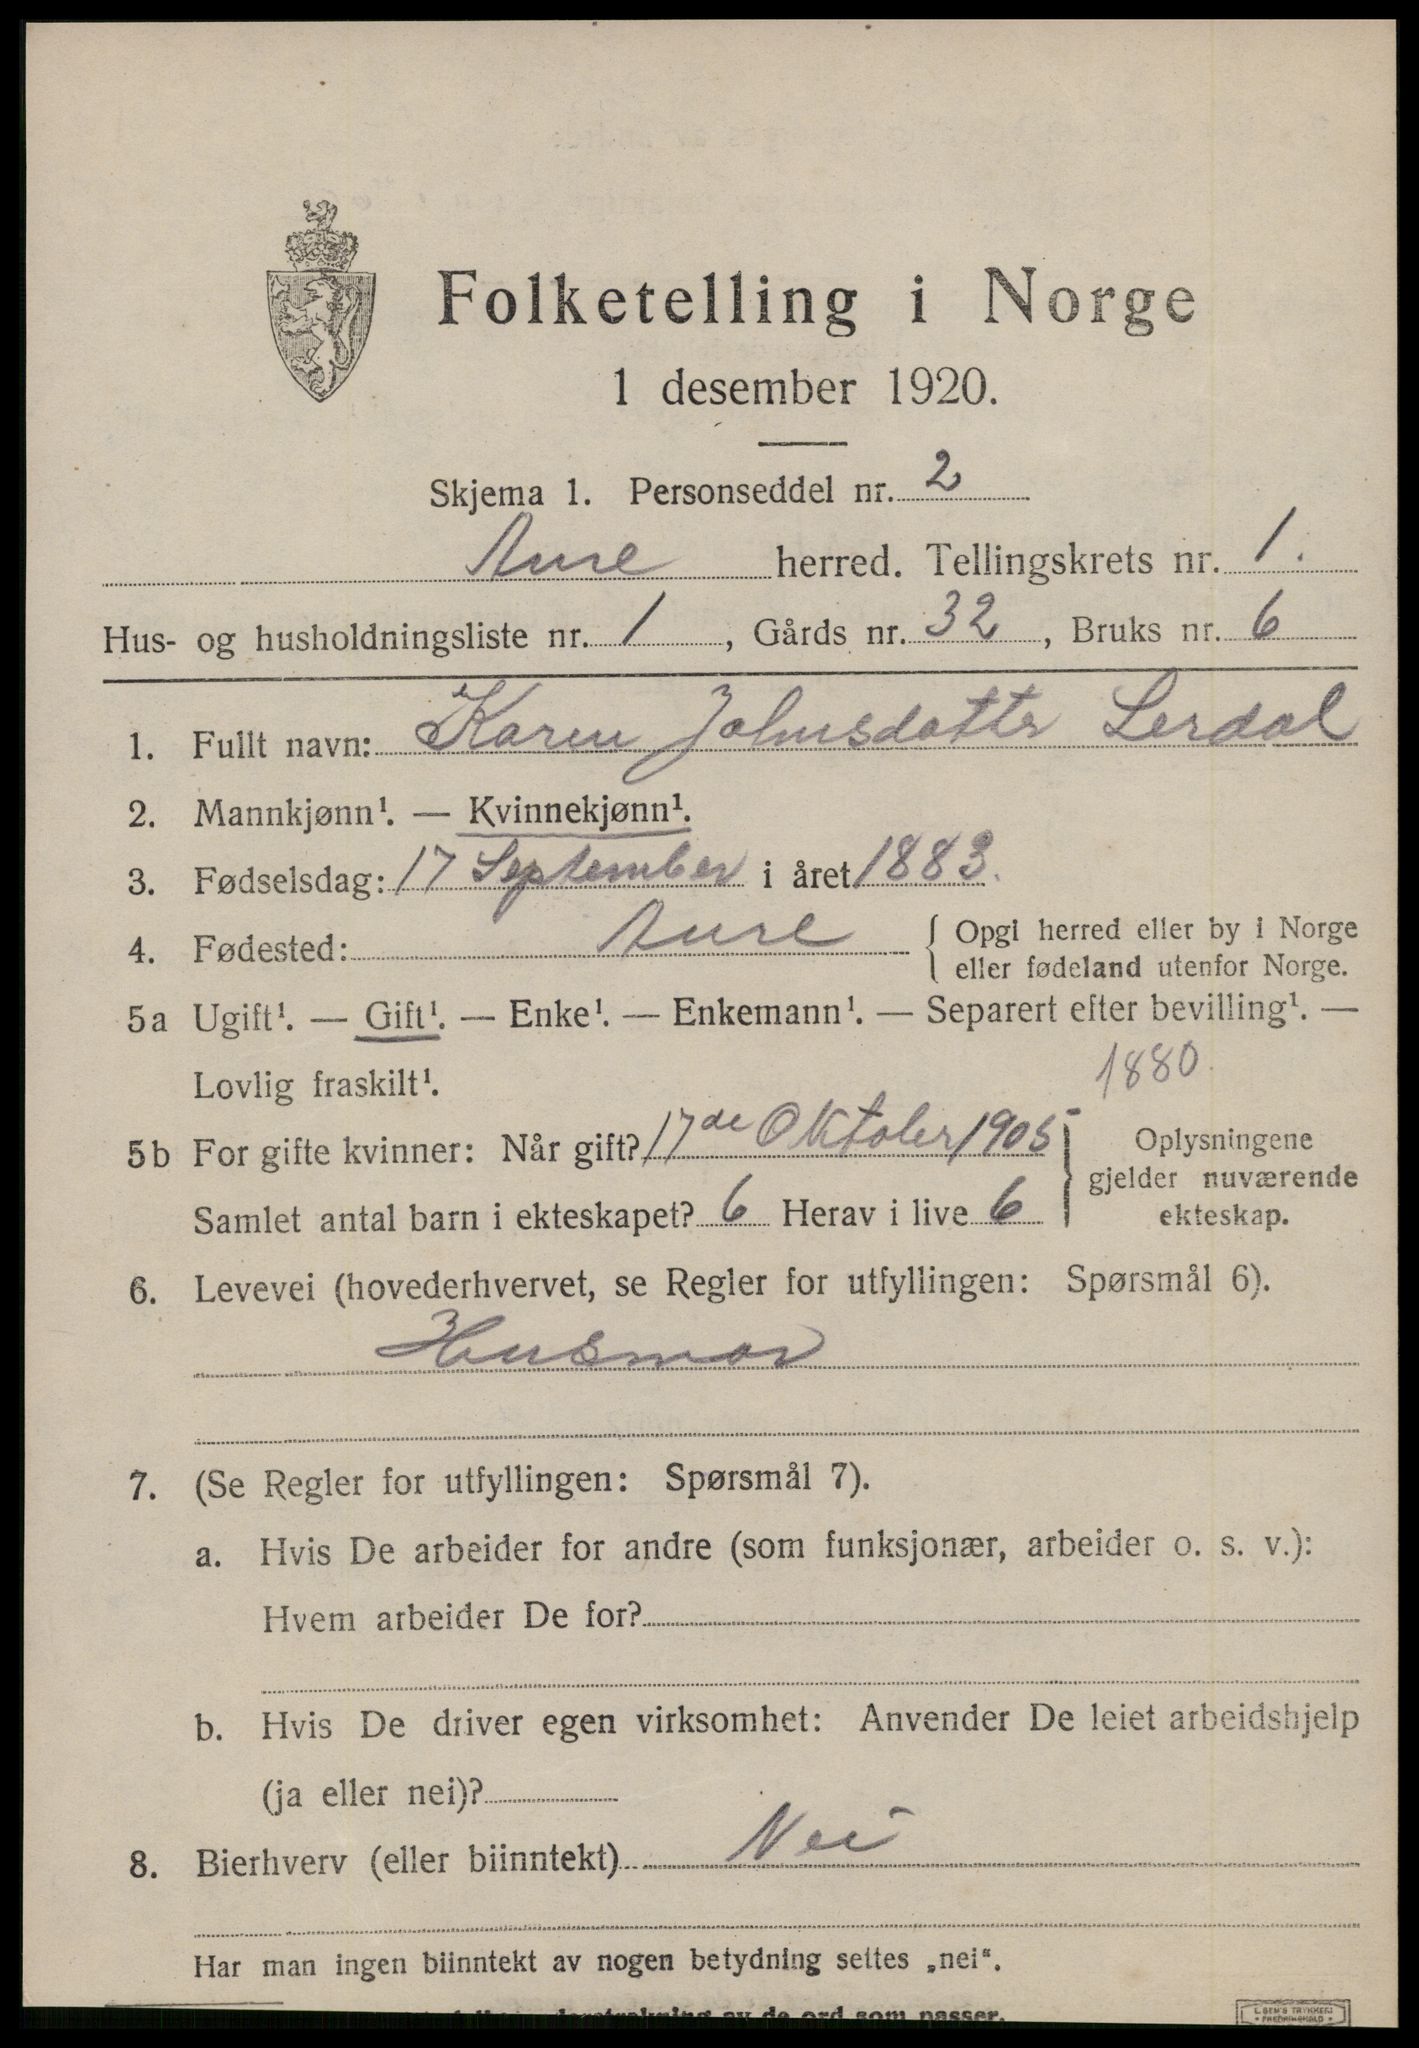 Folketelling i Norge
1 desember 1920.
Skjema 1. Personseddel nr. 2
Aure herred. Tellingskrets nr. 1.
Hus- og husholdningsliste nr. 1, Gårds nr. 32, Bruks nr. 6
1. Fullt navn: Karen Johnsdatter Lerdal
2. Mannkjønn¹. — Kvinnekjønn¹.
3. Fødselsdag: 17 September i året 1883.
4. Fødested: Aure { Opgi herred eller by i Norge
eller fødeland utenfor Norge.
5a Ugift¹. — Gift¹. — Enke¹. — Enkemann¹. — Separert efter bevilling¹. —
Lovlig fraskilt¹.
1880.
5b For gifte kvinner: Når gift? 17de Oktober 1905
Samlet antal barn i ekteskapet? 6 Herav i live 6
Oplysningene
gjelder nuværende
ekteskap.
6. Levevei (hovederhvervet, se Regler for utfyllingen: Spørsmål 6).
Husmor
7. (Se Regler for utfyllingen: Spørsmål 7).
a. Hvis De arbeider for andre (som funksjonær, arbeider o. s. v.):
Hvem arbeider De for?
b. Hvis De driver egen virksomhet: Anvender De leiet arbeidshjelp
(ja eller nei)?
8. Bierhverv (eller biinntekt) Nei
Har man ingen biinntekt av nogen betydning settes „nei“.
av de ord som passer.